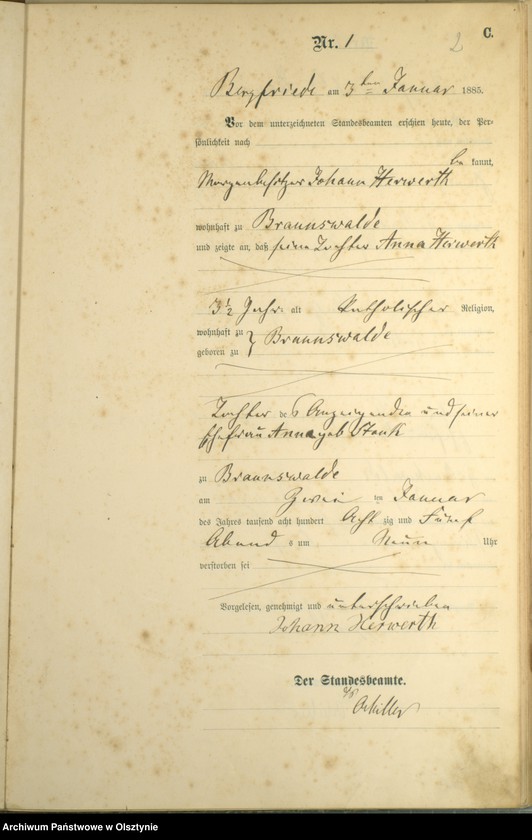 Nr. 1
2
C.
Bergfriede am 3ten Januar 1885.
Vor dem unterzeichneten Standesbeamten erschien heute, der Per-
sönlichkeit nach
be kannt,
Morgenbesitzer Johann Herwerth
wohnhaft zu Braunswalde
und zeigte an, daß seine Tochter Anna Herwerth
3 1/2 Jahr alt Katholischer Religion,
wohnhaft zu } Braunswalde
geboren zu
Tochter des Anzeigenden und seiner
Ehefrau Anna geb
zu Braunswalde
am Zwei ten Januar
des Jahres tausend acht hundert Acht zig und Fünf
Abend s um Neun Uhr
verstorben sei
Vorgelesen, genehmigt und unterschrieben
Johann Herwerth
Der Standesbeamte.
Archiwum Państwowe w Olsztynie